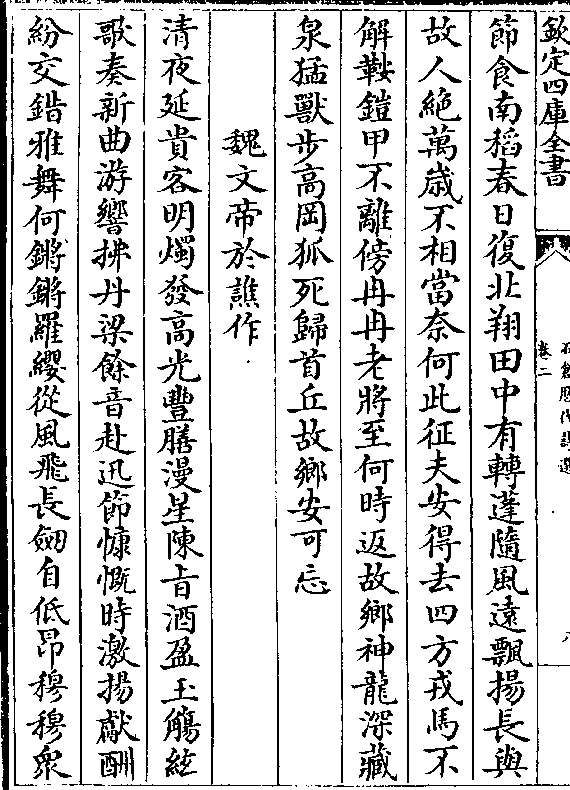 欽定四庫全書
卷二
節食南稻春日復北翔田中有轉蓬隨風遠飄揚長與
故人絶萬歳不相當奈何此征夫安得去四方戎馬不
解鞍鎧甲不離傍冉冉老將至何時返故鄉神龍深藏
泉猛獸步高岡狐死歸首丘故鄉安可忘
魏文帝於譙作
清夜延貴客明燭發高光豐膳漫星陳旨酒盈玉觴絃
歌奏新曲游響拂丹梁餘音赴迅節慷慨時激揚獻酬
紛交錯雅舞何鏘鏘羅纓從風飛長劒自低昂穆穆衆